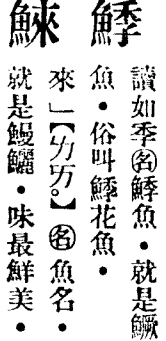 鯚
讀如季㊔鯚魚·就是鱖
魚·俗叫鯚花魚·
鯠
來」【ㄌㄞˊ】㊔魚名·
就是鰻鱺·味最鮮美·